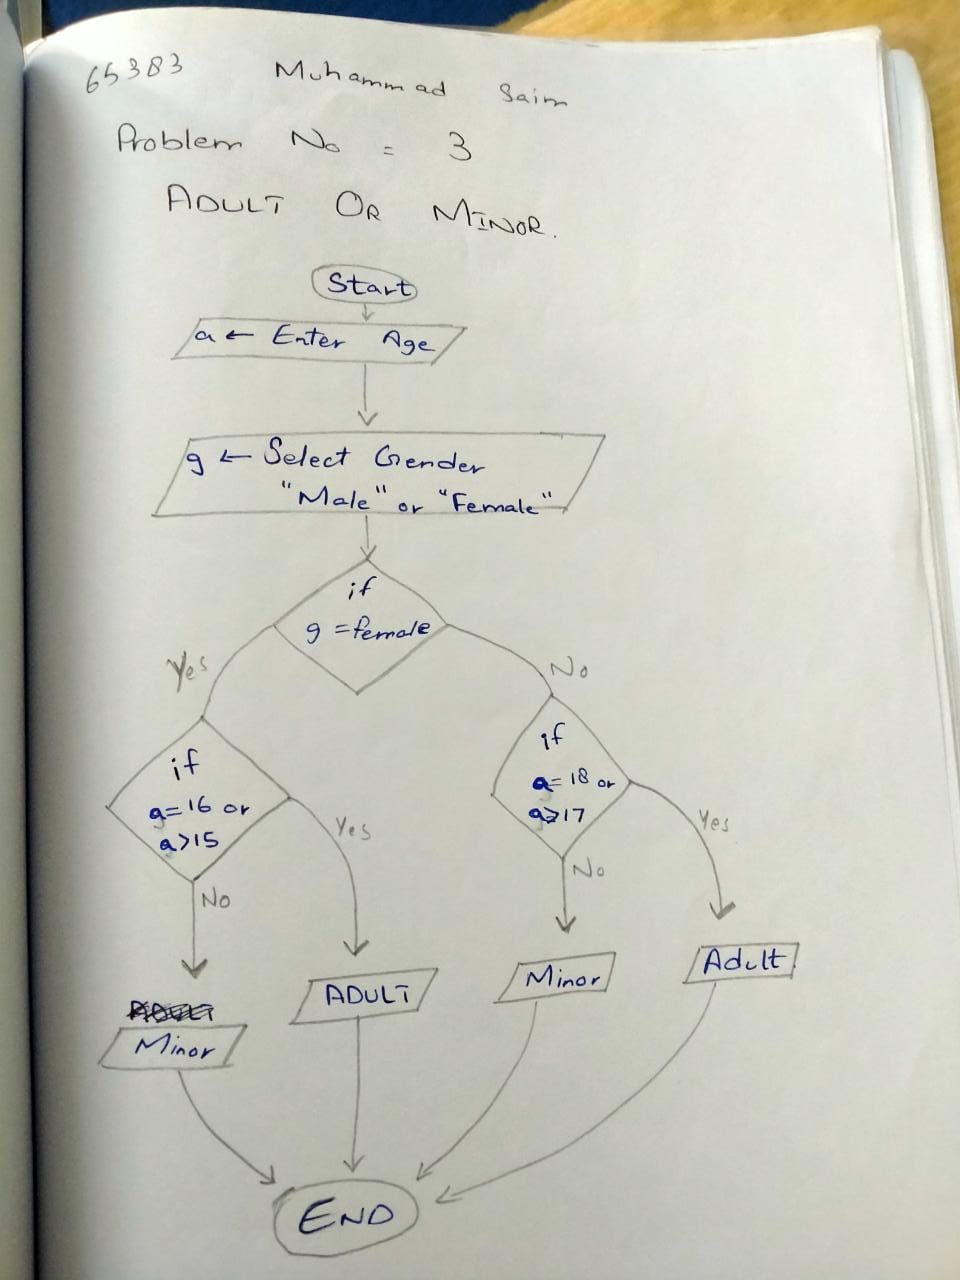 65383 Muhammad Saim
Problem No = 3
ADULT OR MINOR.
Start
a ← Enter Age
g ← Select Gender
"Male" or "Female"
if
g = female
Yes
No
if
a=16 or
a>15
if
a=18 or
a>17
Yes
No
Yes
No
Minor
ADULT
Minor
Adult
END